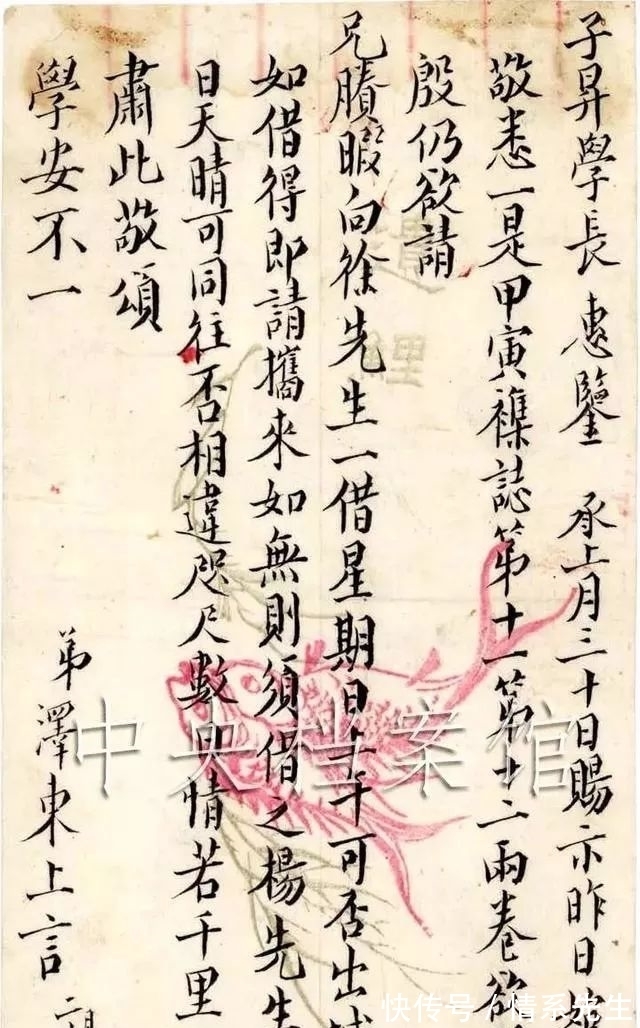 子昇學長 惠鑒 承上月三十日賜示昨日
敬悉一是甲寅襍誌第十一第十二兩卷欲
殷仍欲請
兄賸暇向徐先生一借星期日上午可否出
如借得即請攜來如無則須借之楊先生
日天晴可同往否相違咫尺數日情若千里
肅此敬頌
學安不一
弟澤東上言 二月
中央档案馆
快传号 / 情系先生